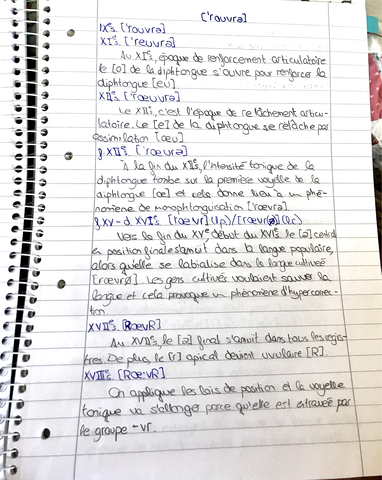 ['rouvrə]
IXᵉs. ['rouvrə]
XIᵉs. ['reuvrə]
Au XIᵉs, époque de renforcement articulatoire
le [o] de la diphtongue s'ouvre pour renforcer la
diphtongue [eu]
XIIᵉs. ['rœuvrə]
Le XIIᵉs, c'est l'époque de relâchement articu-
latoire. Le [e] de la diphtongue se relâche par
assimilation [œu]
f. XIIᵉs. ['rœvrə]
À la fin du XIIᵉs, l'intensité tonique de la
diphtongue tombe sur la première voyelle de la
diphtongue [œ] et cela donne lieu à un phé-
nomène de monophtongaison [rœvrə].
f. XV - d. XVIᵉs. [rœvr] (Lp)/[rœvrø] (Lc)
Vers la fin du XVᵉ début du XVIᵉs, le [ə] central
en position finale s'amuït dans la langue populaire,
alors qu'elle se labialise dans la langue cultivée
[rœvrø]. Les gens cultivés voulaient sauver la
langue et cela provoque un phénomène d'hypercorrec-
tion
XVIIᵉs. [RœvR]
Au XVIIᵉs, le [ə] final s'amuït dans tous les regis-
tres. De plus, le [r] apical devient uvulaire [R].
XVIIIᵉs. [Rœ:vR]
On applique les lois de position et la voyelle
tonique va s'allonger parce qu'elle est entravée par
le groupe -vr.